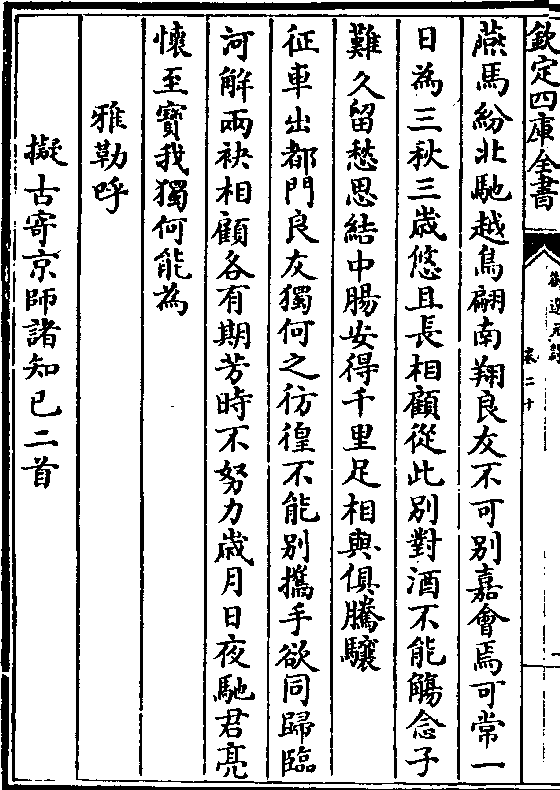 欽定四庫全書
卷二十
燕馬紛北馳越鳥翩南翔良友不可別嘉會焉可常一
日為三秋三歲悠且長相顧從此別對酒不能觴念子
難久留愁思結中腸安得千里足相與俱騰驤
征車出都門良友獨何之彷徨不能別攜手欲同歸臨
河解兩袂相顧各有期芳時不努力歲月日夜馳君亮
懷至寶我獨何能為
雅勒呼
擬古寄京師諸知已二首